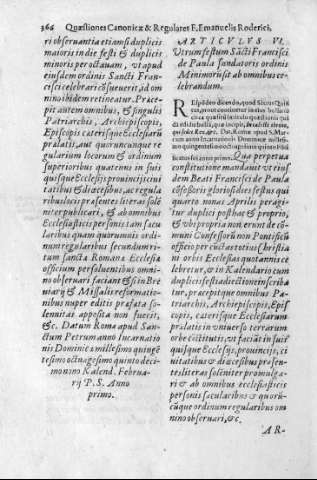 366 Quæstiones Canonicæ & Regulares F. Emanuelis Roderici,
ri obseruantia etiam sub duplicis
maioris in die festi & duplicis
minoris per octauam, vt apud
eiusdem ordinis Sancti Fran-
cisci celebrari cõsueuerit, id om
nino ibidem retineatur. Præce-
pit autem omnibus, & singulis
Patriarchis, Archiepiscopis,
Episcopis cæterisque Ecclesiarũ
prælatis, aut quorumcunque re-
gularium locorum & ordinum
superioribus quatenus in suis
quisque Ecclesijs prouincijs ciui
tatibus & diœcesibus, ac regula
ribus locis præsentes literas solẽ
niter publicari, & ab omnibus
Ecclesiasticis personis tam sæcu
laribus quam quorumuis ordi
num regularibus secundum ri-
tum sanctæ Romanæ Ecclesiæ
officium persoluentibus omni-
no obseruari faciant & si in Bre
uiarij & Missalis reformatio-
nibus nuper editis præfata so-
lemnitas apposita non fuerit,
&c. Datum Romæ apud San-
ctum Petrum anno Incarnatio
nis Dominicæ millesimo quingẽ
tesimo octuagesimo quinto deci-
mo nino Kalend. Februa-
rij P. S. Anno
primo.
ARTICVLVS VI.
Vtrum festum Sãcti Francisci
de Paula fundatoris ordinis
Minimorũ sit ab omnibus ce-
lebrandum.
Respõdeo dicendo, quod Sixtus Quin
tus, prout continetur in suis bullis
circa quæsitũ in titulo quæstionis qui
dẽ ediditbullã, quæ incipit,
Dat. Romæ apud S. Mar-
cum anno Incarnationis Dominicæ millesi-
mo quingentesimo octuagesimo quinto
ficatus sui anno primo. Qua perpetua
constitutione mandauit vt eius
dem Beati Francisci de Paula
cõfessoris gloriosi dies festus qui
quarto nonas Aprilis peragi-
tur duplici post hac & proprio,
& vbi propria non erunt de cõ-
muni Confessorũ non Pontificũ
officio per cũctas totius Christia
ni orbis Ecclesias quotannis ce
lebretur, & in Kalendario cum
duplicis festi addictione inscriba
tur, præcepitque omnibus Pa-
triarchis, Archiepiscopis, Epis
copis, cæterisque Ecclesiarum
prælatis in vniuerso terrarum
orbe cõstitutis, vt faciãt in suis
quisque Ecclesijs, prouincijs, ci
uitatibus & diœcesibus præsen-
tes literas solẽniter promulga-
ri & ab omnibus ecclesiasticis
personis sæcularibus & quorũ-
cũque ordinum regularibus om
nino obseruari, &c.
AR-